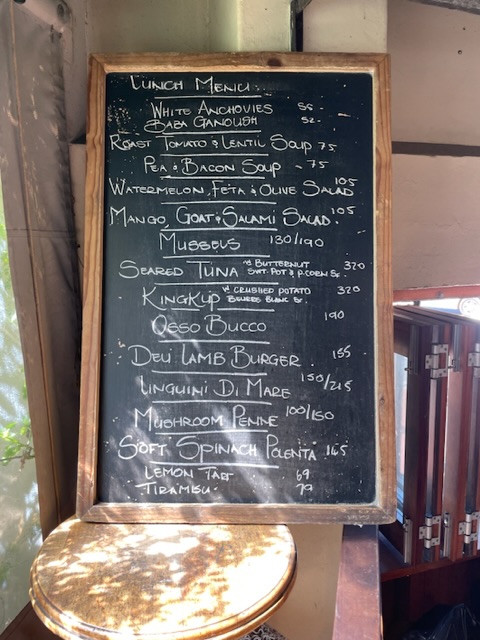 LUNCH MENU.
WHITE ANCHOVIES 55 -
BABA GANOUSH 52-
ROAST TOMATO & LENTIL SOUP 75
PEA & BACON SOUP - 75
WATERMELON, FETA & OLIVE SALAD 105
MANGO, GOAT & SALAMI SALAD. 105
MUSSELS 130/190
SEARED TUNA W BUTTERNUT 320
SWT. POT & P.CORN
KINGKLIP W CRUSHED POTATO 320
BEURRE BLANC
OSSO BUCCO 190
DELI LAMB BURGER 155
LINGUINI DI MARE 150/215
MUSHROOM PENNE 100/150
SOFT SPINACH POLENTA 165
LEMON TART 69
TIRAMISU. 79